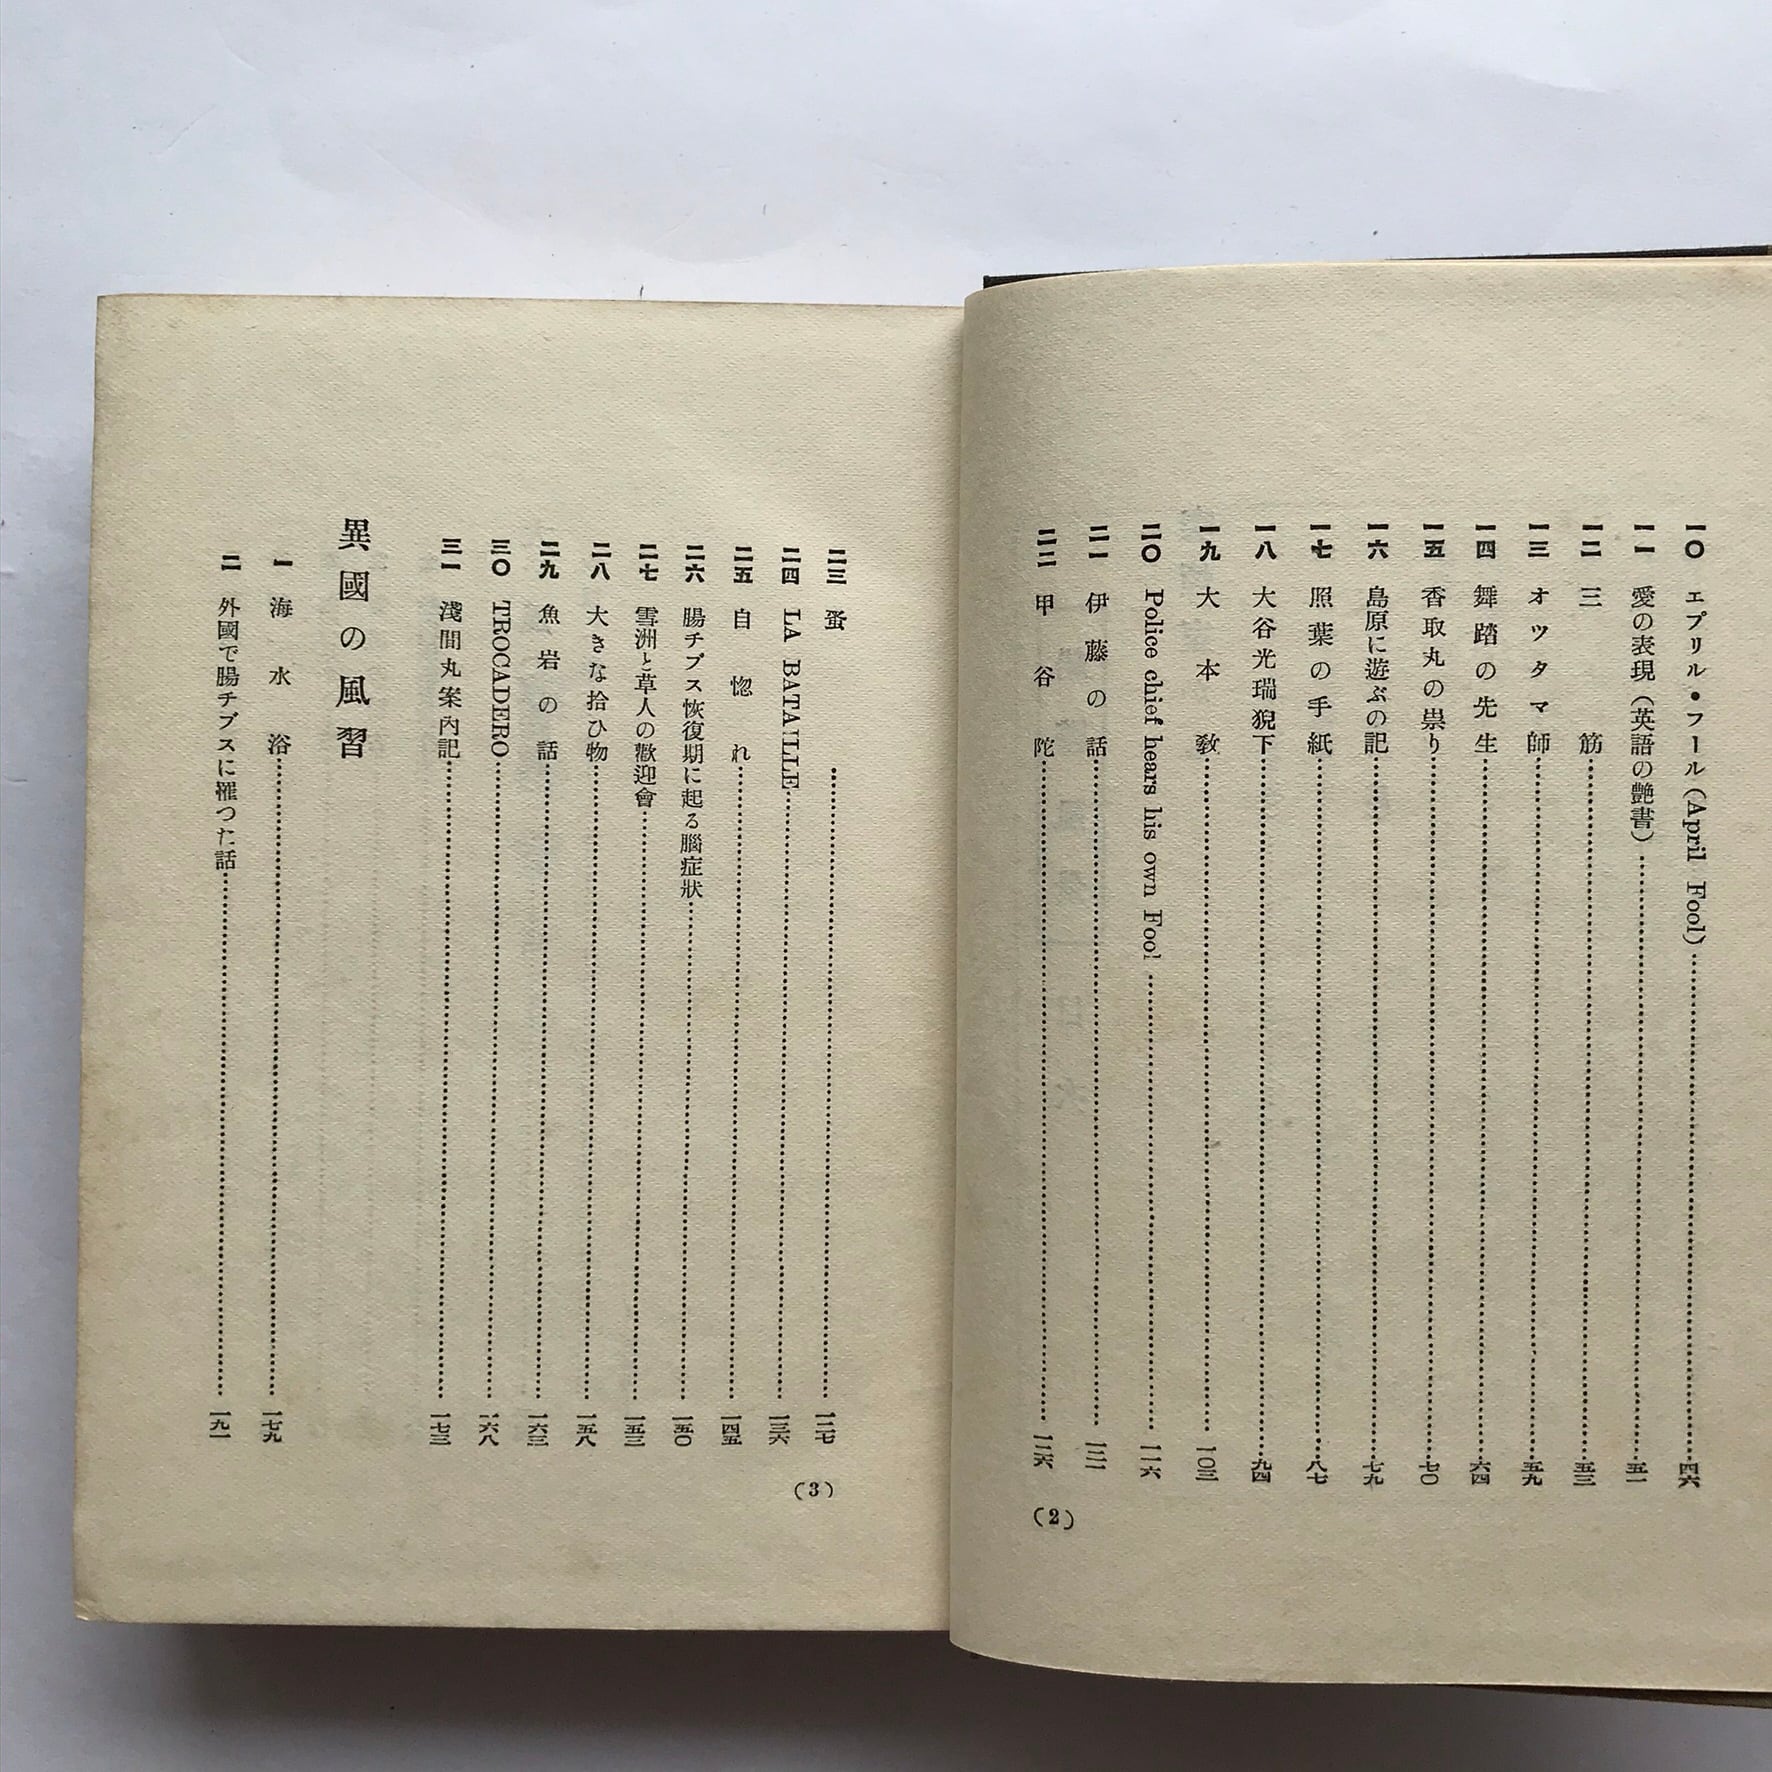 一〇 エプリル・フール(April Fool)……四六
一一 愛の表現(英語の艶書)……五一
一二 三筋……五三
一三 オツタマ師……五九
一四 舞踏の先生……六四
一五 香取丸の祟り……七〇
一六 島原に遊ぶの記……七九
一七 照葉の手紙……八七
一八 大谷光瑞猊下……九四
一九 大本教……一〇三
二〇 Police chief hears his own Fool……一一六
二一 伊藤の話……
二二 甲谷陀……一二六
(2)
二三 蚤……一二七
二四 LA BATAILLE……一三六
二五 自惚れ……一四五
二六 腸チブス恢復期に起る腦症狀……一五〇
二七 雪洲と草人の歡迎會……一五三
二八 大きな拾ひ物……一五八
二九 魚岩の話……一六三
三〇 TROCADERO……一六八
三一 淺間丸案內記……一七三
異國の風習
一 海水浴……一七九
二 外國で腸チブスに罹つた話……一九一
(3)